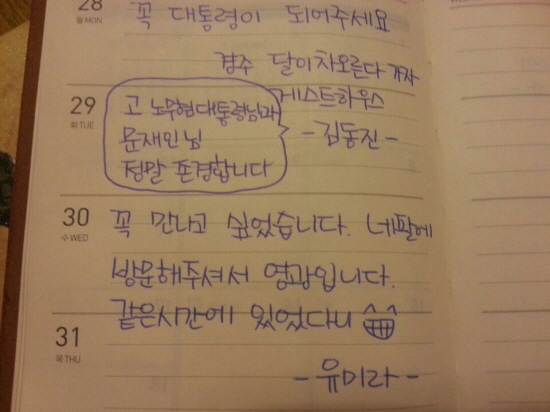 28
월 MON
꼭 대통령이 되어주세요
경주 달이차오른다 가자
게스트하우스
- 김동진 -
29
화 TUE
고 노무현대통령님과
문재인님
정말 존경합니다
30
수 WED
꼭 만나고 싶었습니다. 네팔에
방문해주셔서 영광입니다.
같은시간에 있었다니
31
목 THU
- 유미라 -